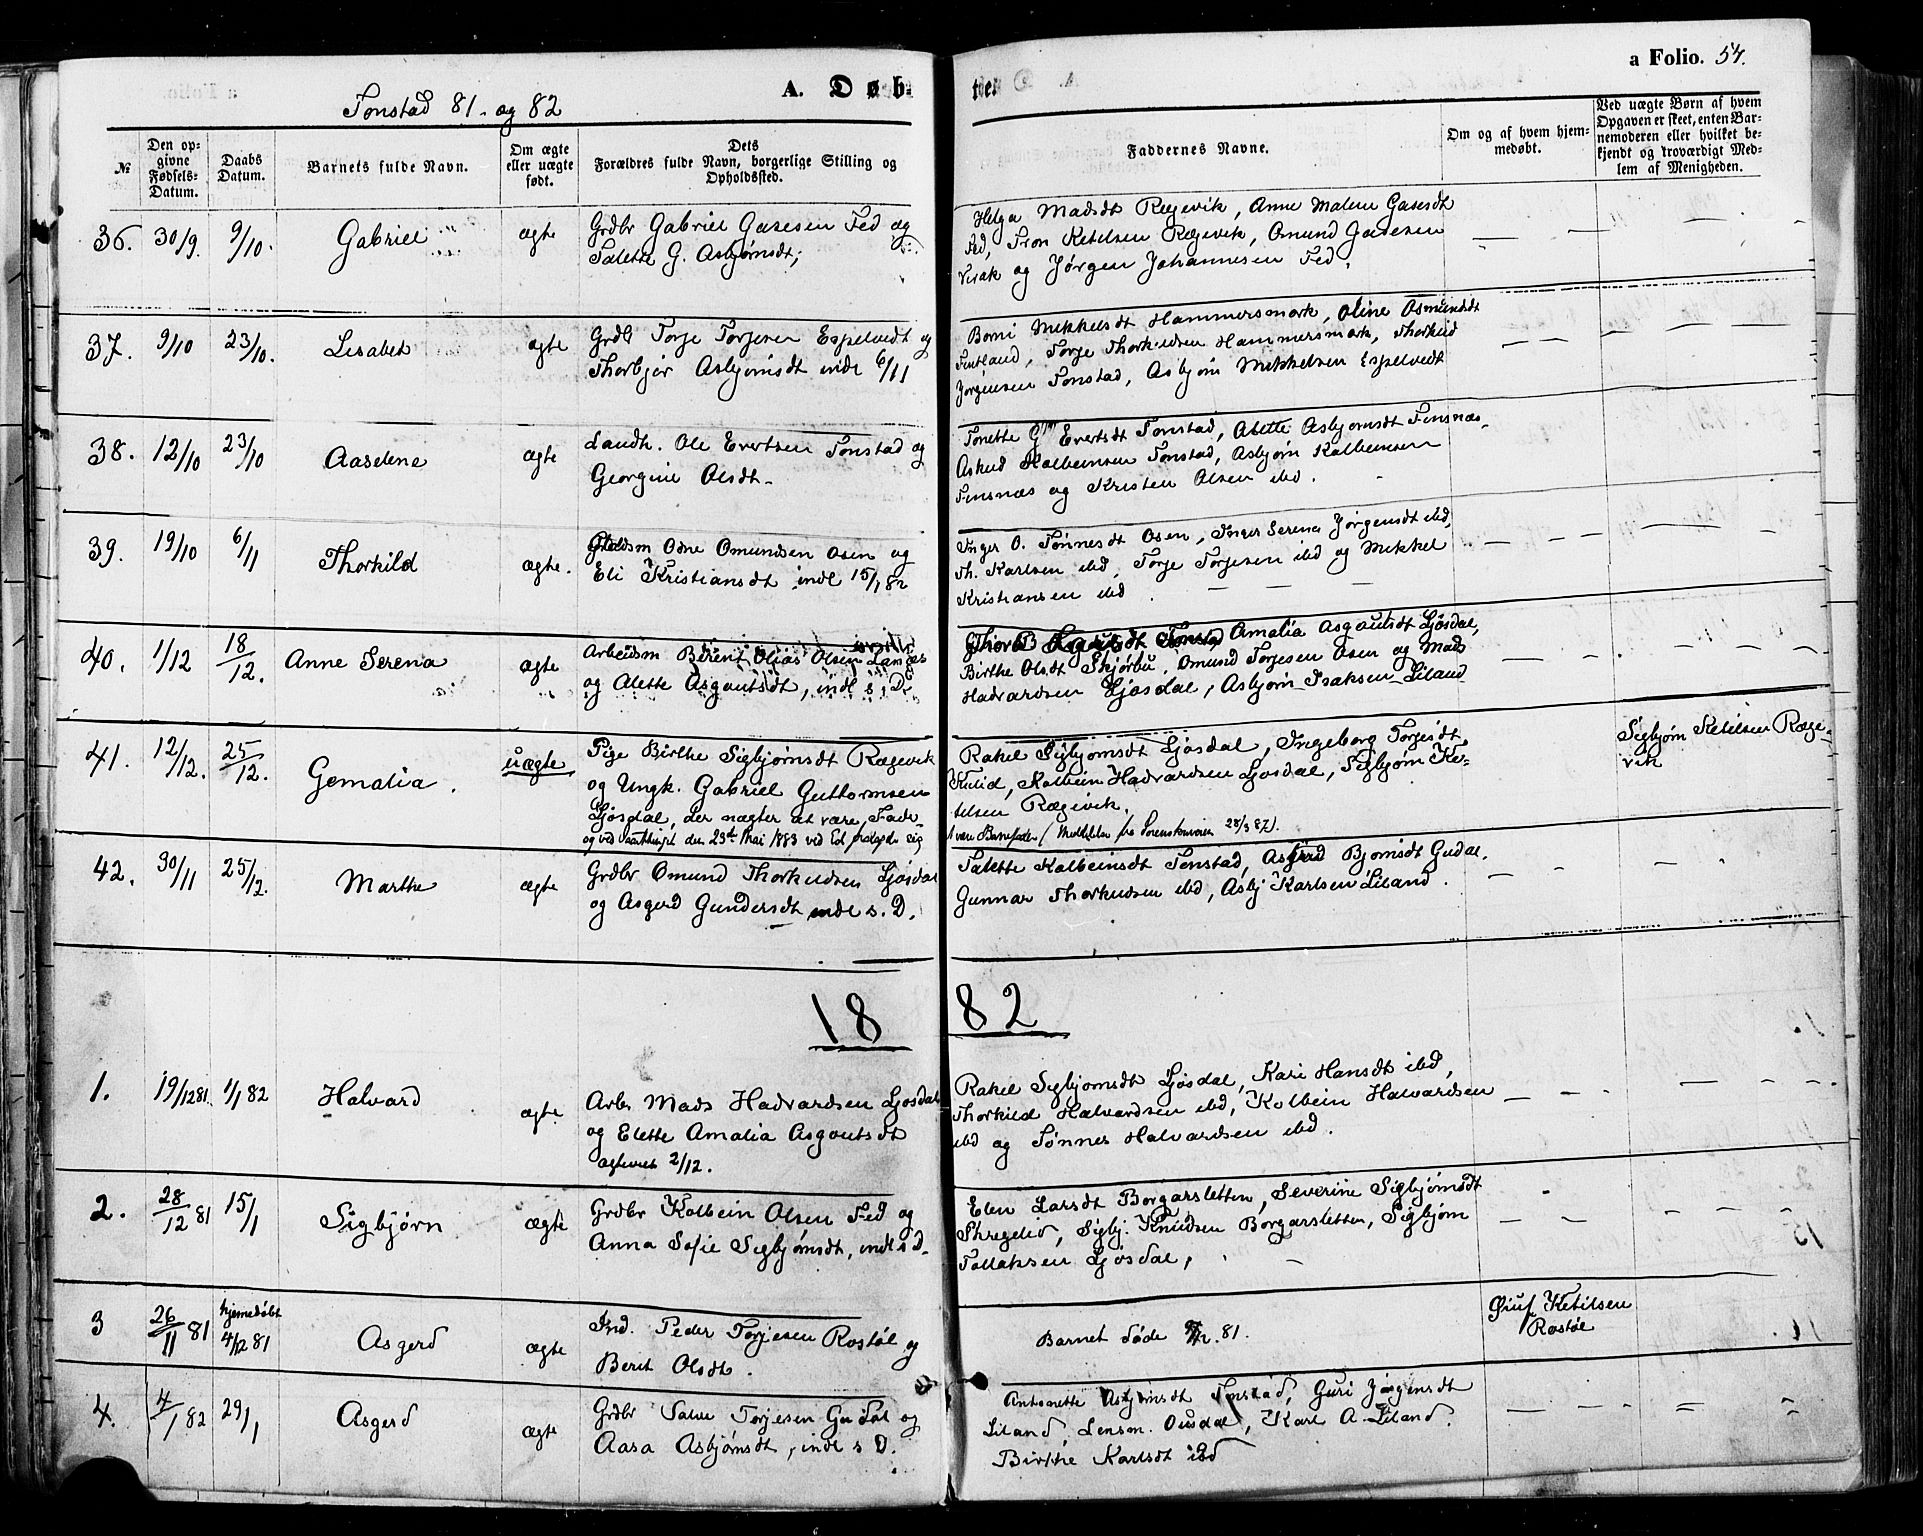 a Folio. 54.
Tonstad 81. og 82
A. Døb-
te.
№
Den op-
givne
Fødsels-
Datum.
Daabs
Datum.
Barnets fulde Navn.
Om ægte
eller uægte
født.
Dets
Forældres fulde Navn, borgerlige Stilling og
Opholdssted.
Faddernes Navne.
Om og af hvem hjem-
medøbt.
Ved uægte Børn af hvem
Opgaven er skeet, enten Bar-
nemoderen eller hvilket be-
kjendt og troværdigt Med-
lem af Menigheden.
36. 30/9. 9/10. Gabriel ægte
Grdbr Gabriel Gasesen Fed og
Salette G. Asbjørnsdt;
Helga Madsdt Regevik, Anne Malene Gasesdt
Fed, Tron Ketelsen Rægevik, Omund Gasesen
Virak og Jørgen Johannesen Fed.
37. 9/10 23/10. Lisabet ægte
Grdb Torje Torjesen Espelvedt og
Thorbjør Asbjørnsdt indl 6/11
Borni Mikkelsdt Hammersmork, Oline Osmundsdt
Fintland, Torje Thorkildsen Hammersmark, Thorkild
Jørgensen Tonstad, Asbjørn Mikkelsen Espelvedt
38. 12/10 23/10 Aaselene ægte
Landh. Ole Evertsen Tonstad og
Georgine Olsdt-
Tonette Evertsdt Tonstad, Alette Asbjørnsdt Finsnæs,
Askild Kolbeinsen Tonstad, Asbjørn Kolbeinsen
Finsnæs og Kristen Olsen ibd.
39. 19/10 6/11 Thorkild ægte.
Pladsm Odne Omundsen Osen og
Eli Kristiansdt indl 15/1 82
Inger O. Tønnesdt Osen, Inger Serena Jørgensdt ibd,
Th. Karlsen ibd, Torje Torjesen ibd og Mikkel
Kristiansen ibd.
40. 1/12 18/12. Anne Serena ægte
Arbeidsm Berent Olias Olsen
og Alette Asgautsdt, indl s. D.
Tonstad Amalia Asgautsdt Ljosdal,
Birthe Olsdt Skjørbu, Omund Torjesen Osen og Mads
Hadvardsen Ljosdal, Asbjørn Isaksen Liland
41. 12/12. 25/12. Gemalia. uægte
Pige Birthe Sigbjørnsdt Rægevik
og Ungk. Gabriel Guttormsen
Ljosdal, der nægter at være Fader
og ved Sommerthinget den 23de Mai 1883 ved Ed fralagde sig
Rakel Sigbjørnsdt Ljosdal, Ingeborg Torjesdt
Kulid, Kolbein Hadvardsen Ljosdal, Sigbjørn Ke-
telsen Rægevik.
at være Barnefader (Meddelelse fra Sorenskriveren 28/3 87).
Sigbjørn Ketilsen Ræge-
vik
42. 30/11 25/12. Marthe ægte
Grdbr Omund Thorkildsen Ljosdal
og Asgerd Gundersdt indl s. D.
Salette Kolbeinsdt Tonstad, Asgerd Bjornsdt Gudal.
Gunnar Thorkildsen ibd, Asbj Karlsen Liland.
1882
1. 19/12 81. 1/1 82 Halvard ægte
Arbr Mads Hadvardsen Ljosdal
og Elette Amalia Asgautsdt
agteviet 2/12.
Rakel Sigbjornsdt Ljosdal, Kari Hansdt ibd,
Thorkild Halvardsen ibd, Kolbein Halvardsen
ibd og Tønnes Halvardsen ibd.
2. 28/12 81 15/1 Sigbjørn ægte
Grdbr Kolbein Olsen Fed og
Anna Sofie Sigbjørnsdt, indl s D.
Elen Larsdt Borgarsletten, Severine Sigbjørnsdt
Skregelid, Sigbj. Knudsen Borgarsletten, Sigbjørn
Tollaksen Ljosdal,
3 26/11 81 hjemedøbt 4/12 81 Asgerd ægte
Ind. Peder Torjesen Rostøl og
Berit Olsdt.
Barnet døde /12. 81.
Øiuf Ketilsen
Rostøl
4. 4/1 82 29/1 Asgerd ægte
Grdbr Salve Torjesen Gudal og
Aasa Asbjørnsdt, indl s D.
Antonette Asbjørnsdt Tonstad, Guri Jørgensdt
Liland, Lensm. Ousdal, Karl A. Liland.
Birthe Karlsdt ibd